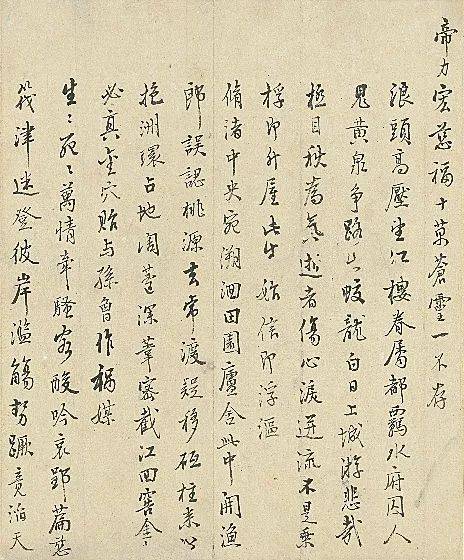 帝力宏慈福十萬蒼靈一不存
浪頭高壓望江樓眷屬都羈水府囚人
鬼黃泉爭路出蛟龍白日上城游悲哉
極目秋為氣逝者傷心淚迸流不是乘
桴即升屋此身始信即浮漚
脩渚中央宛溯洄田園廬舍此中開漁
郎誤認桃源去疑移砥柱來沙
抱洲環占地闊蘆深葦密截江回窖金未
必真金穴貽與孫曾作禍媒
生〻死〻萬情牽騷客酸吟哀郢篇慈
筏津迷登彼岸濫觴勢蹶竟滔天